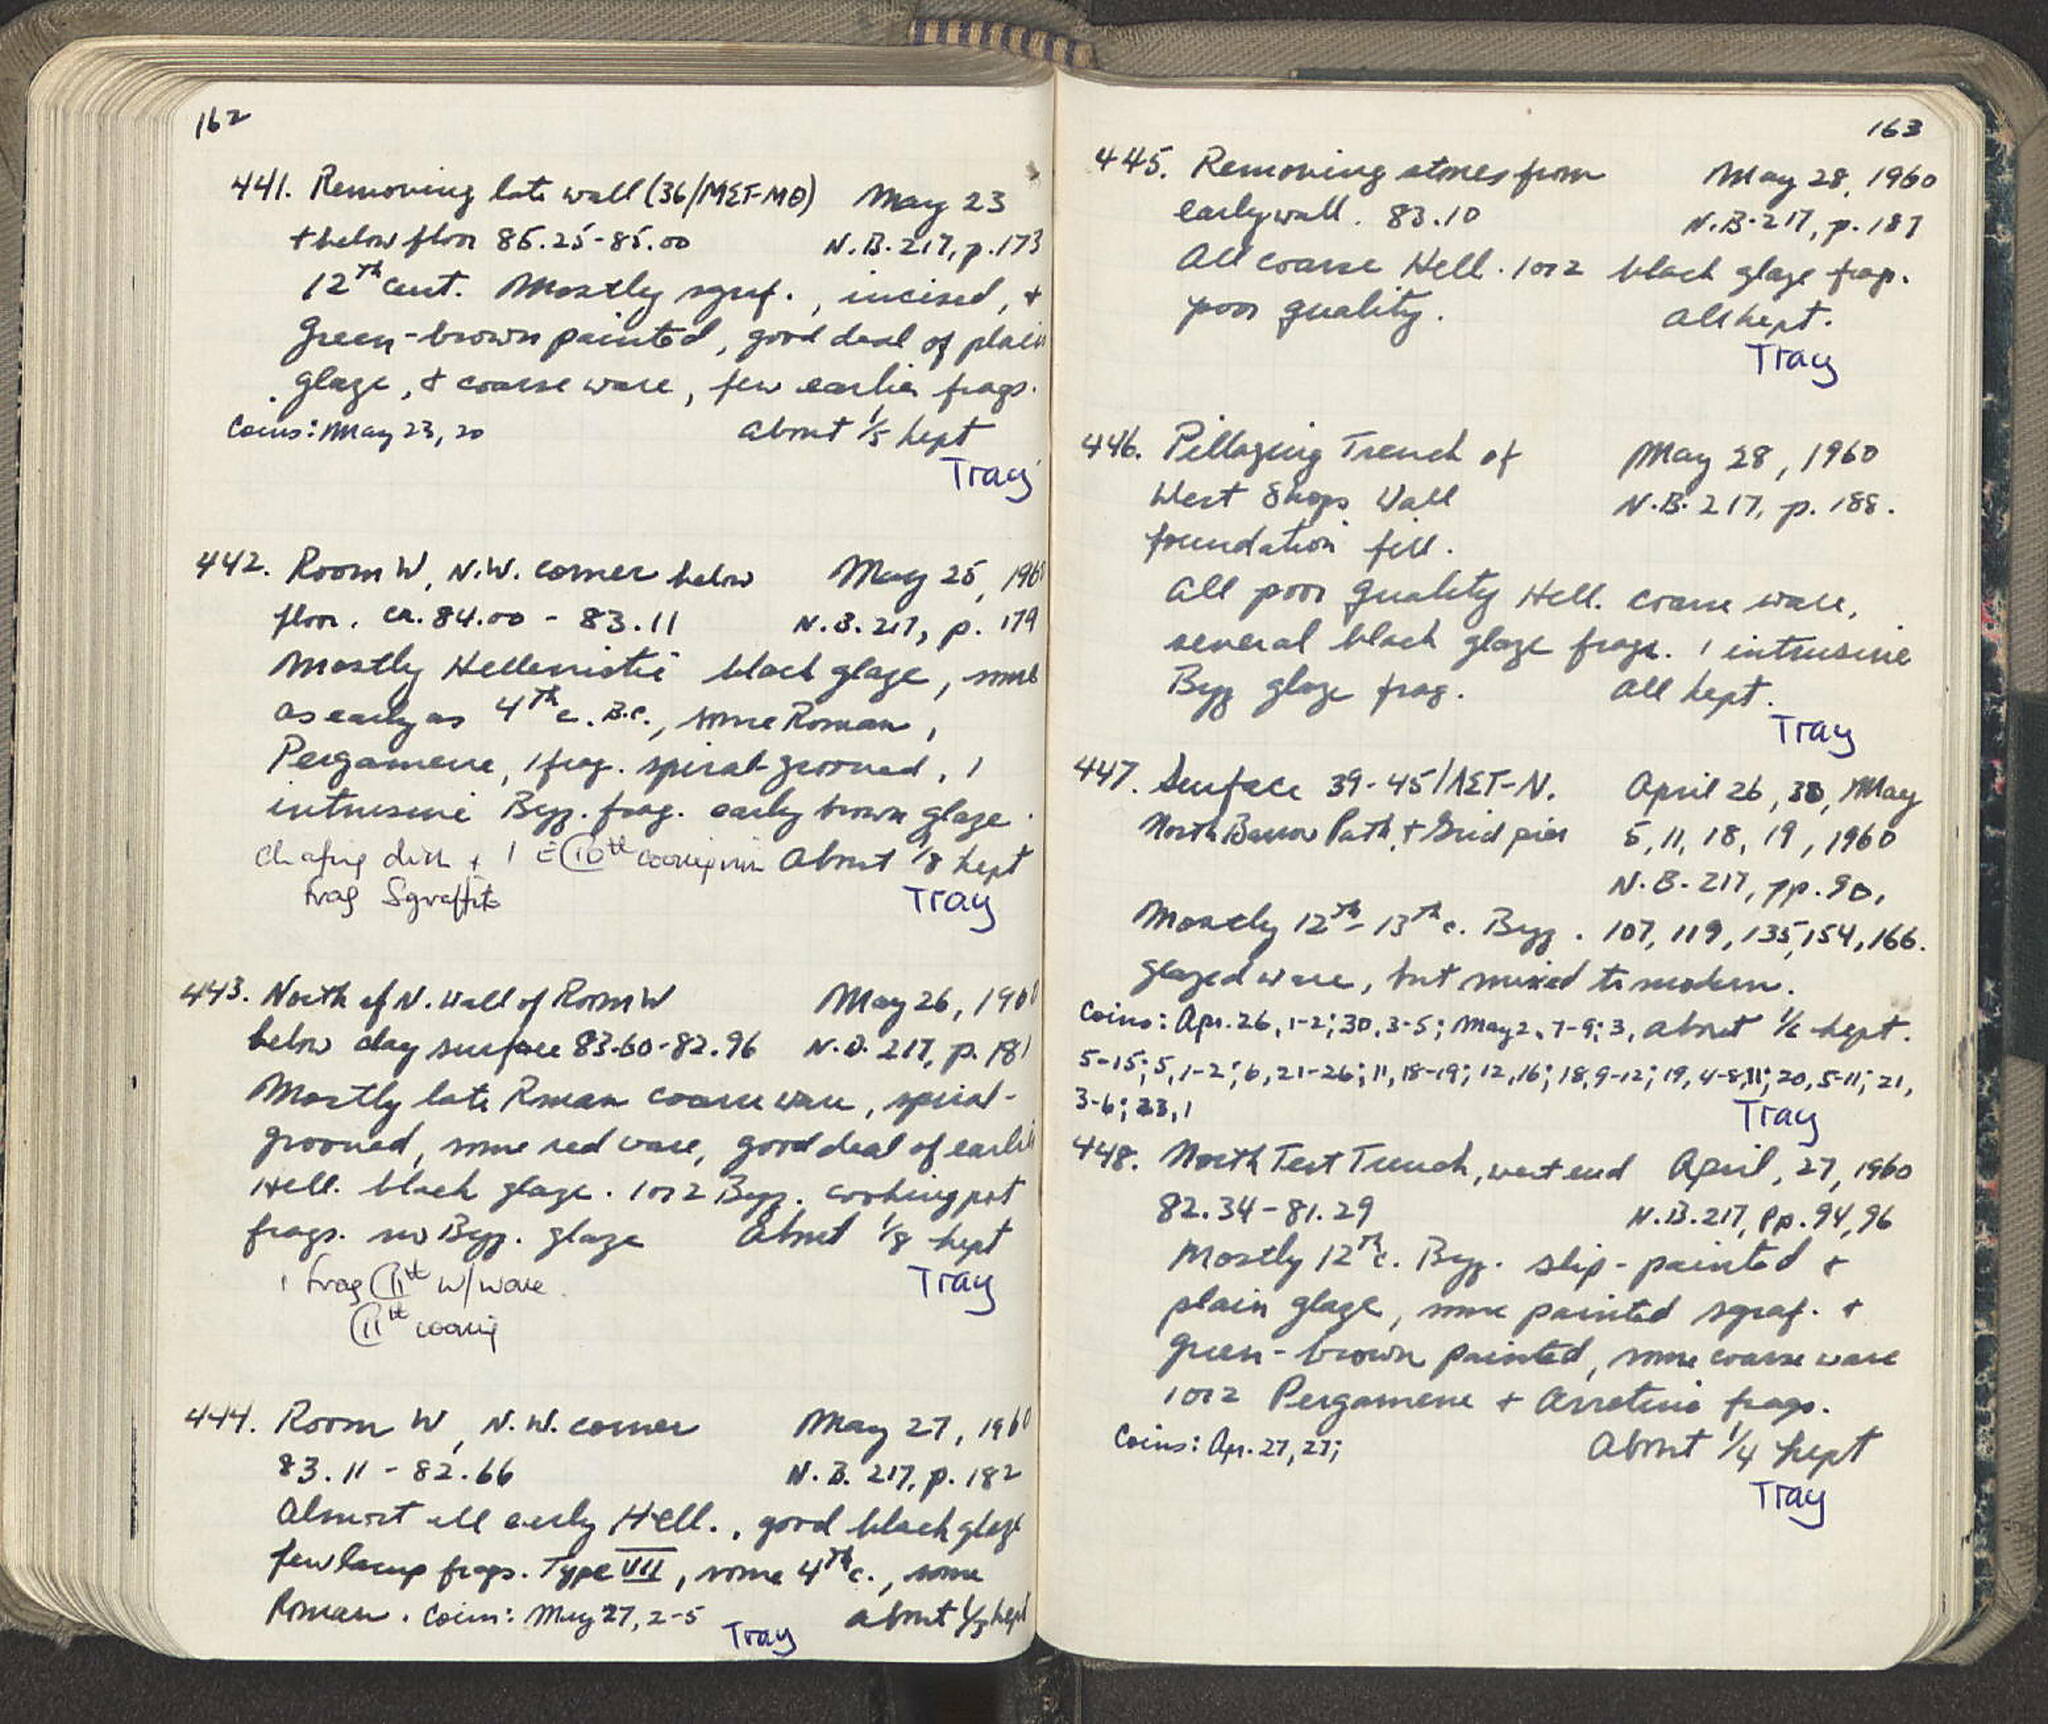 162
441. Removing late wall (36/ΜΣΤ-ΜΘ) May 23
+ below floor 86.25-85.00 N.B. 217, p. 173
12th cent. Mostly sgraf., incised, +
Green-brown painted, good deal of plain
glaze, & coarse ware, few earlier frags.
Coins: May 23, 20 About 1/5 kept
Tray
442. Room W, N.W. corner below May 25, 1960
floor. ca. 84.00 - 83.11 N.B. 217, p. 179
Mostly Hellenistic black glaze, some
as early as 4th c. B.C., some Roman,
Pergamene, 1 frag. spiral-grooved, 1
intrusive Byz. frag. early brown glaze.
Chafing dish + 1 c̄ 10th About 1/8 kept
frag Sgraffito Tray
443. North of N. Wall of Room W May 26, 1960
below clay surface 83.60-82.96 N.B. 217, p. 181
Mostly late Roman coarse ware, spiral-
grooved, some red ware, good deal of earlier
Hell. black glaze. 1 or 2 Byz. cooking pot
frags. no Byz. glaze About 1/8 kept
1 frag 11th w/ware Tray
11th
444. Room W, N.W. corner May 27, 1960
83.11 - 82.66 N.B. 217, p. 182
Almost all early Hell., good black glaze
few lamp frags. Type VII, some 4th c., some
Roman. Coins: May 27, 2-5 About 1/3 kept
Tray
163
445. Removing stones from May 28, 1960
early wall. 83.10 N.B. 217, p. 187
All coarse Hell. 1 or 2 black glaze frag.
poor quality. All kept.
Tray
446. Pillaging Trench of May 28, 1960
West Shops Wall N.B. 217, p. 188.
foundation fill.
All poor quality Hell. coarse ware,
several black glaze frags. 1 intrusive
Byz glaze frag. All kept.
Tray
447. Surface 39-45/ΛΣΤ-Ν. April 26, 30, May
North Barrow Path, + Grid pier 5, 11, 18, 19, 1960
N.B. 217, pp. 90,
Mostly 12th-13th c. Byz. 107, 119, 135, 154, 166.
glazed ware, but mixed to modern.
Coins: Apr. 26, 1-2; 30, 3-5; May 2, 7-9; 3, About 1/6 kept.
5-15; 5, 1-2; 6, 21-26; 11, 18-19; 12, 16; 18, 9-12; 19, 4-8, 11; 20, 5-11; 21,
3-6; 23, 1 Tray
448. North Test Trench, west end April, 27, 1960
82.34-81.29 N.B. 217, Pp. 94, 96
Mostly 12th c. Byz. slip-painted +
plain glaze, some painted sgraf. +
green-brown painted, some coarse ware
1 or 2 Pergamene + Arretine frags.
Coins: Apr. 27, 27; About 1/4 kept
Tray